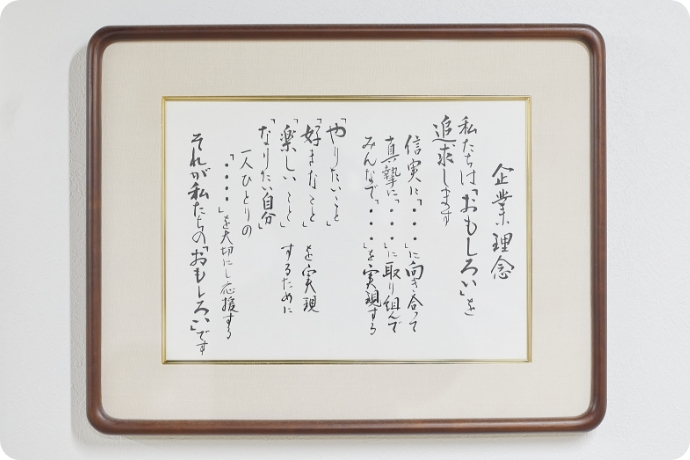 企業理念
私たちは「おもしろい」を
追求します
信実に「・・・」に向き合って
真摯に「・・・」に取り組んで
みんなで「・・・」を実現する
「やりたいこと」
「好きなこと」を実現
「楽しいこと」するために
「なりたい自分」
一人ひとりの
「・・・・」を大切にし応援する
それが私たちの「おもしろい」です